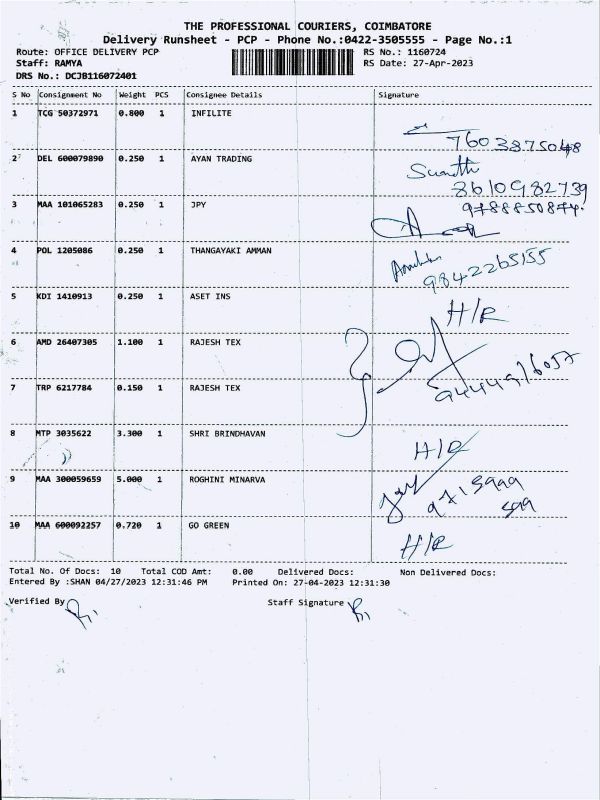 THE PROFESSIONAL COURIERS, COIMBATORE
Delivery Runsheet - PCP - Phone No.:0422-3505555 - Page No.:1
Route: OFFICE DELIVERY PCP
RS No.: 1160724
Staff: RAMYA
RS Date: 27-Apr-2023
DRS No.: DCJB116072401
S No Consignment No Weight PCS Consignee Details Signature
1 TCG 50372971 0.800 1 INFILITE
7603875048
2 DEL 600079890 0.250 1 AYAN TRADING
8610982739
3 MAA 101065283 0.250 1 JPY
9788850844.
4 POL 1205086 0.250 1 THANGAYAKI AMMAN
9842265155
5 KDI 1410913 0.250 1 ASET INS
H/R
6 AMD 26407305 1.100 1 RAJESH TEX
9444976057
7 TRP 6217784 0.150 1 RAJESH TEX
8 MTP 3035622 3.300 1 SHRI BRINDHAVAN
H/R
9 MAA 300059659 5.000 1 ROGHINI MINARVA
10 MAA 600092257 0.720 1 GO GREEN
H/R
Total No. Of Docs: 10 Total COD Amt: 0.00 Delivered Docs: Non Delivered Docs:
Entered By :SHAN 04/27/2023 12:31:46 PM Printed On: 27-04-2023 12:31:30
Verified By
Staff Signature